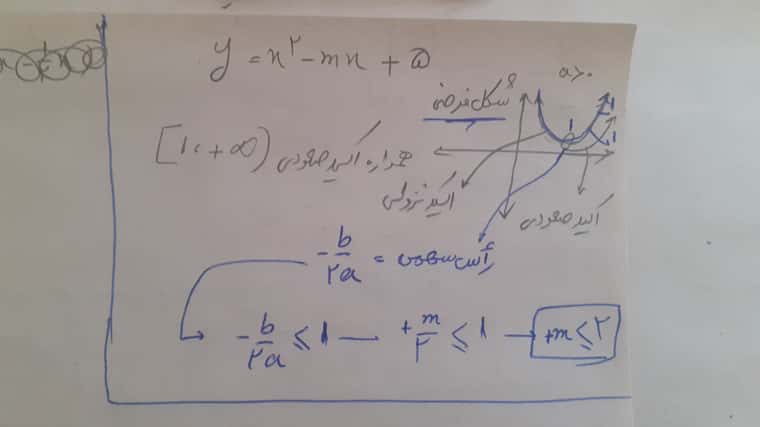 y = x² - mx + ۵
a>۰
شکل فرضی
همواره اکید صعودی [۱, +∞)
اکید نزولی
اکید صعودی
-b/۲a = رأس سهمی
-b/۲a ≤ ۱ → +m/۲ ≤ ۱ → +m ≤ ۲